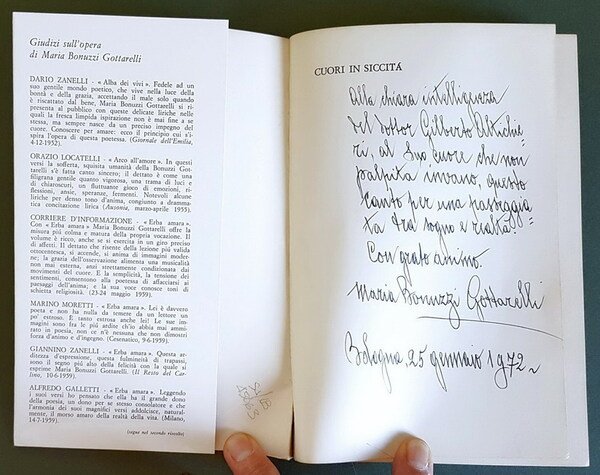 Giudizi sull'opera
di Maria Bonuzzi Gottarelli
DARIO ZANELLI - « Alba dei vivi ». Fedele ad un
suo gentile mondo poetico, che vive nella luce della
bontà e della grazia, accettando il male solo quando
è riscattato dal bene, Maria Bonuzzi Gottarelli si ri-
presenta al pubblico con queste delicate liriche nelle
quali la fresca limpida ispirazione non è mai fine a se
stessa, ma sempre nasce da un preciso impegno del
cuore. Conoscere per amare: ecco il principio cui s'i-
spira l'opera di questa poetessa. (Giornale dell'Emilia,
4-12-1952).
ORAZIO LOCATELLI - « Arco all'amore ». In questi
versi la sofferta, squisita umanità della Bonuzzi Got-
tarelli s'è fatta canto sincero; il dettato è come una
filigrana gentile quanto vigorosa, una trama di luci e
di chiaroscuri, un fluttuante gioco di emozioni, ri-
flessioni, ansie, speranze, fermenti. Notevoli alcune
liriche per denso tono d'anima, congiunto a dramma-
tica concitazione lirica (Ausonia, marzo-aprile 1955).
CORRIERE D'INFORMAZIONE - « Erba amara ».
Con « Erba amara » Maria Bonuzzi Gottarelli offre la
misura più colma e matura della propria vocazione. Il
volume è ricco, anche se si esercita in un giro preciso
di affetti. Il dettato che risente della lezione più valida
ottocentesca, si accende, si anima di immagini moder-
ne; la grazia dell'osservazione alimenta una musicalità
non mai esterna, anzi strettamente condizionata dai
movimenti del cuore. E la semplicità, la tensione dei
sentimenti, consentono alla poetessa di affacciarsi ai
paesaggi dell'anima; e la sua voce conosce toni di
schietta religiosità. (23-24 maggio 1959).
MARINO MORETTI - « Erba amara ». Lei è davvero
poeta e non ha nulla da temere da un lettore un
po' estroso. E tanto estrosa anche lei! Le sue im-
magini sono fra le più ardite ch'io abbia mai ammi-
rato in poesia, non ce n'è nessuna che non dimostri
forza d'animo e d'ingegno. (Cesenatico, 9-6-1959).
GIANNINO ZANELLI - « Erba amara ». Questa ar-
ditezza d'espressione, questa fulmineità di trapassi,
sono il segno più alto della felicità con la quale si
esprime Maria Bonuzzi Gottarelli. (Il Resto del Car-
lino, 10-6-1959).
ALFREDO GALLETTI - « Erba amara ». Leggendo
i suoi versi ho pensato che ella ha il grande dono
della poesia, un dono per se stesso consolatore e che
l'armonia dei suoi magnifici versi addolcisce, natural-
mente, il morso amaro della realtà della vita. (Milano,
14-7-1959).
(segue nel secondo risvolto)
CUORI IN SICCITÁ
Alla chiara intelligenza
del dottor Gilberto Altichie=
ri, al Suo cuore che non
palpita invano, questo
canto per una passeggia=
ta tra sogno e realtà.
Con grato animo.
Maria Bonuzzi Gottarelli
Bologna, 25 gennaio 1972